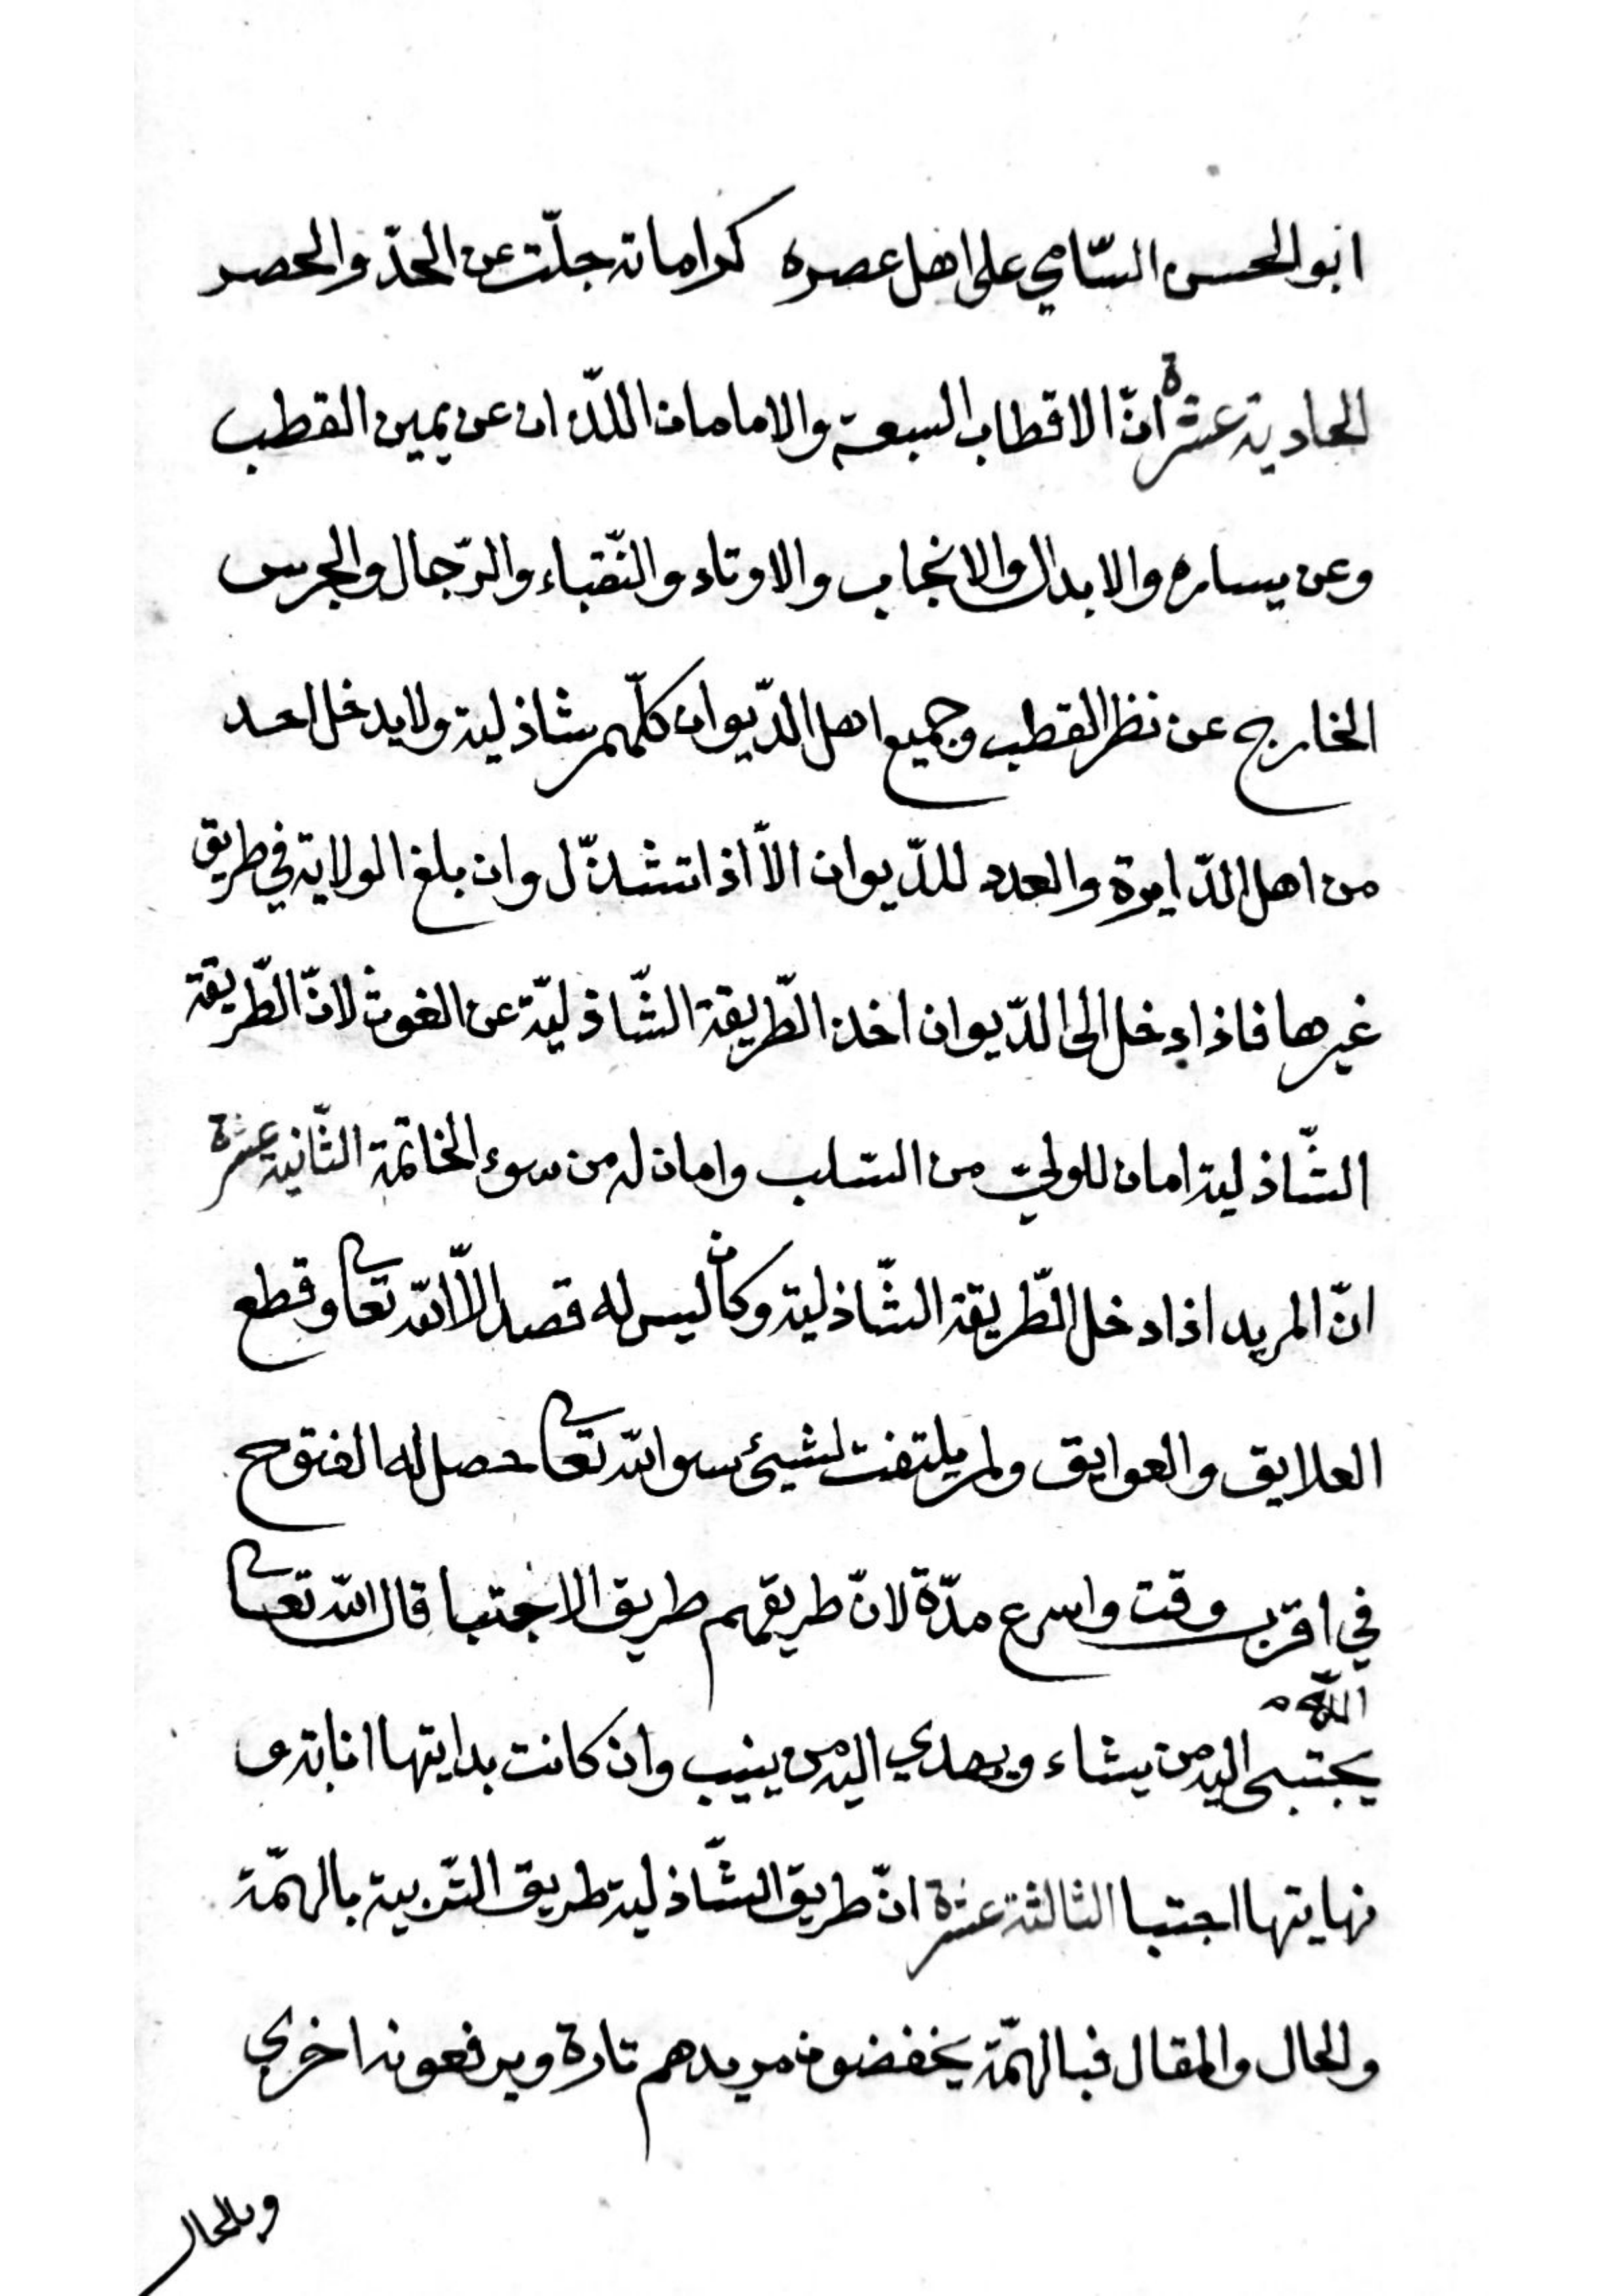 ابو الحسن السّامي على اهل عصره كراماته جلّت عن الحدّ والحصر
الحادية عشرة انّ الاقطاب السبعة والامامان اللذّان عن يمين القطب
وعن يساره والابدال والانجاب والاوتاد والنّقباء والرّجال والجرس
الخارج عن نظر القطب وجميع اهل الدّيوان كلّهم شاذلية ولا يدخل احد
من اهل الدّايرة والعدد للدّيوان الاّ اذا تشذّل وان بلغ الولاية في طريق
غيرها فاذا دخل الى الدّيوان اخذ الطّريقة الشّاذليّة عن الغوث لانّ الطّريقة
الشّاذلية امان للوليّ من السّلب وامان له من سوء الخاتمة الثّانية عشرة
انّ المريد اذا دخل الطّريقة الشّاذلية وكان ليس له قصد الاّ الله تعا وقطع
العلايق والعوايق ولم يلتفت لشيئ سوا الله تعا حصل له الفتوح
في اقرب وقت واسرع مدّة لانّ طريقهم طريق الاجتبا قال الله تعا
الله
يجتبى اليه من يشاء ويهدي اليه من ينيب وان كانت بدايتها انابة و
نهايتها اجتبا الثالثة عشرة انّ طريق الشّاذلية طريق التّربية بالهمّة
والحال والمقال فبالهمّة يخفضون مريدهم تارة ويرفعونه اخرى
وبالحال